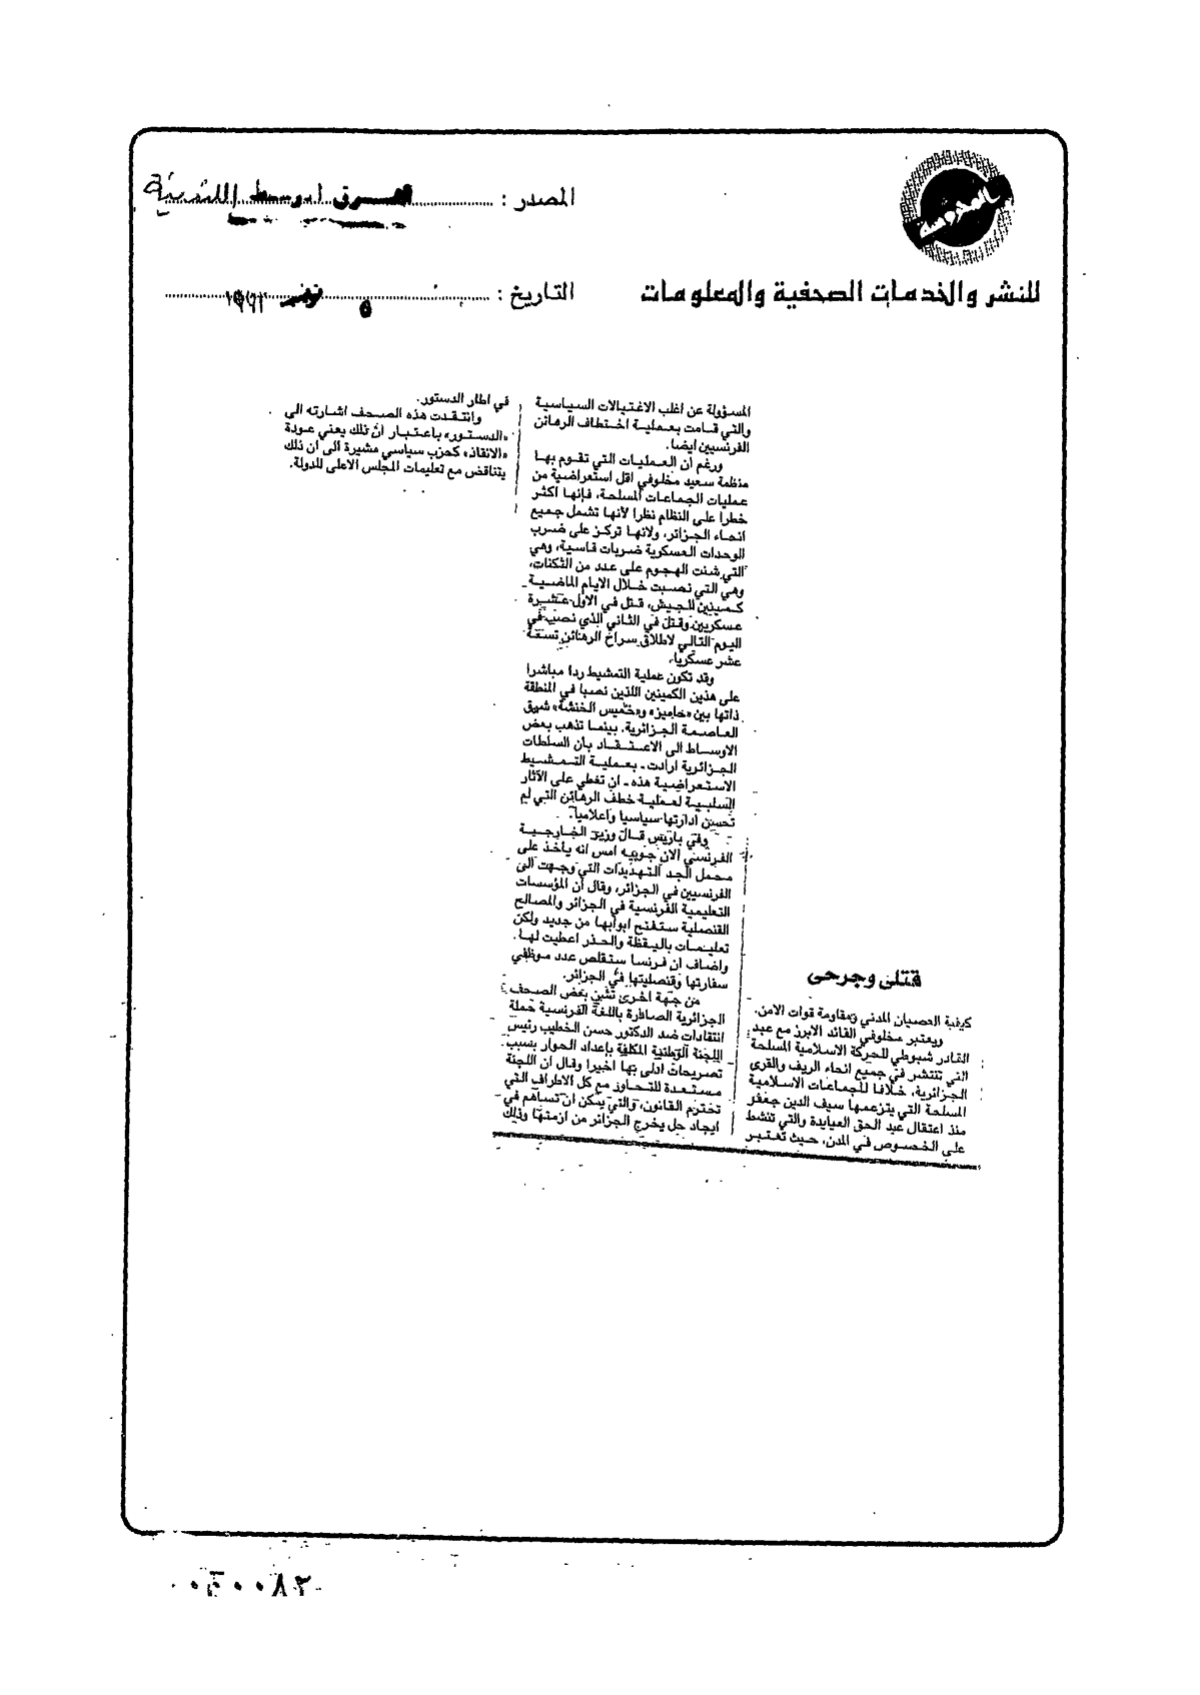 المصدر : الشرق اوسط اللندنية
للنشر والخدمات الصحفية والمعلومات
التاريخ : ٥ نوفمبر ١٩٩٣
قتلى وجرحى
كيفية العصيان المدني ومقاومة قوات الامن.
ويعتبر مخلوفي القائد الابرز مع عبد
القادر شبوطي للحركة الاسلامية المسلحة
التي تنتشر في جميع انحاء الريف والقرى
الجزائرية، خلافا للجماعات الاسلامية
المسلحة التي يتزعمها سيف الدين جعفر
منذ اعتقال عبد الحق العيايدة والتي تنشط
على الخصوص في المدن، حيث تعتبر
المسؤولة عن اغلب الاغتيالات السياسية
والتي قامت بعملية اختطاف الرهائن
الفرنسيين ايضا.
ورغم أن العمليات التي تقوم بها
منظمة سعيد مخلوفي اقل استعراضية من
عمليات الجماعات المسلحة، فإنها اكثر
خطرا على النظام نظرا لأنها تشمل جميع
انحاء الجزائر، ولانها تركز على ضرب
الوحدات العسكرية ضربات قاسية، وهي
التي شنت الهجوم على عدد من الثكنات،
وهي التي نصبت خلال الايام الماضية
كمينين للجيش، قتل في الاول عشرة
عسكريين وقتل في الثاني الذي نصب في
اليوم التالي لاطلاق سراح الرهائن تسعة
عشر عسكريا.
وقد تكون عملية التمشيط ردا مباشرا
على هذين الكمينين اللذين نصبا في المنطقة
ذاتها بين «خاميز» و«خميس الخشنة» شرق
العاصمة الجزائرية. بينما تذهب بعض
الاوساط الى الاعتقاد بأن السلطات
الجزائرية ارادت - بعملية التمشيط
الاستعراضية هذه - ان تغطي على الآثار
السلبية لعملية خطف الرهائن التي لم
تحسن ادارتها سياسيا واعلاميا.
وفي باريس قال وزير الخارجية
الفرنسي الان جوبيه امس انه يأخذ على
محمل الجد التهديدات التي وجهت الى
الفرنسيين في الجزائر، وقال أن المؤسسات
التعليمية الفرنسية في الجزائر والمصالح
القنصلية ستفتح ابوابها من جديد ولكن
تعليمات باليقظة والحذر اعطيت لها.
واضاف ان فرنسا ستقلص عدد موظفي
سفارتها وقنصليتها في الجزائر.
من جهة اخرى تشن بعض الصحف
الجزائرية الصادرة باللغة الفرنسية حملة
انتقادات ضد الدكتور حسن الخطيب رئيس
اللجنة الوطنية المكلفة بإعداد الحوار بسبب
تصريحات ادلى بها اخيرا وقال ان اللجنة
مستعدة للتحاور مع كل الاطراف التي
تحترم القانون، والتي يمكن ان تساهم في
ايجاد حل يخرج الجزائر من ازمتها وذلك
في اطار الدستور.
وانتقدت هذه الصحف اشارته الى
«الدستور» باعتبار ان ذلك يعني عودة
«الانقاذ» كحزب سياسي مشيرة الى ان ذلك
يتناقض مع تعليمات المجلس الاعلى للدولة.